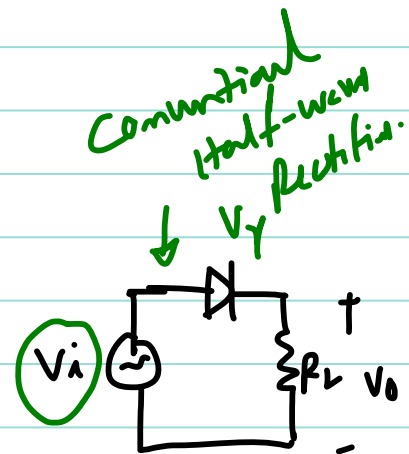 Conventional
Half-wave
Rectifier.
Vγ
Vi
RL
+
V0
-